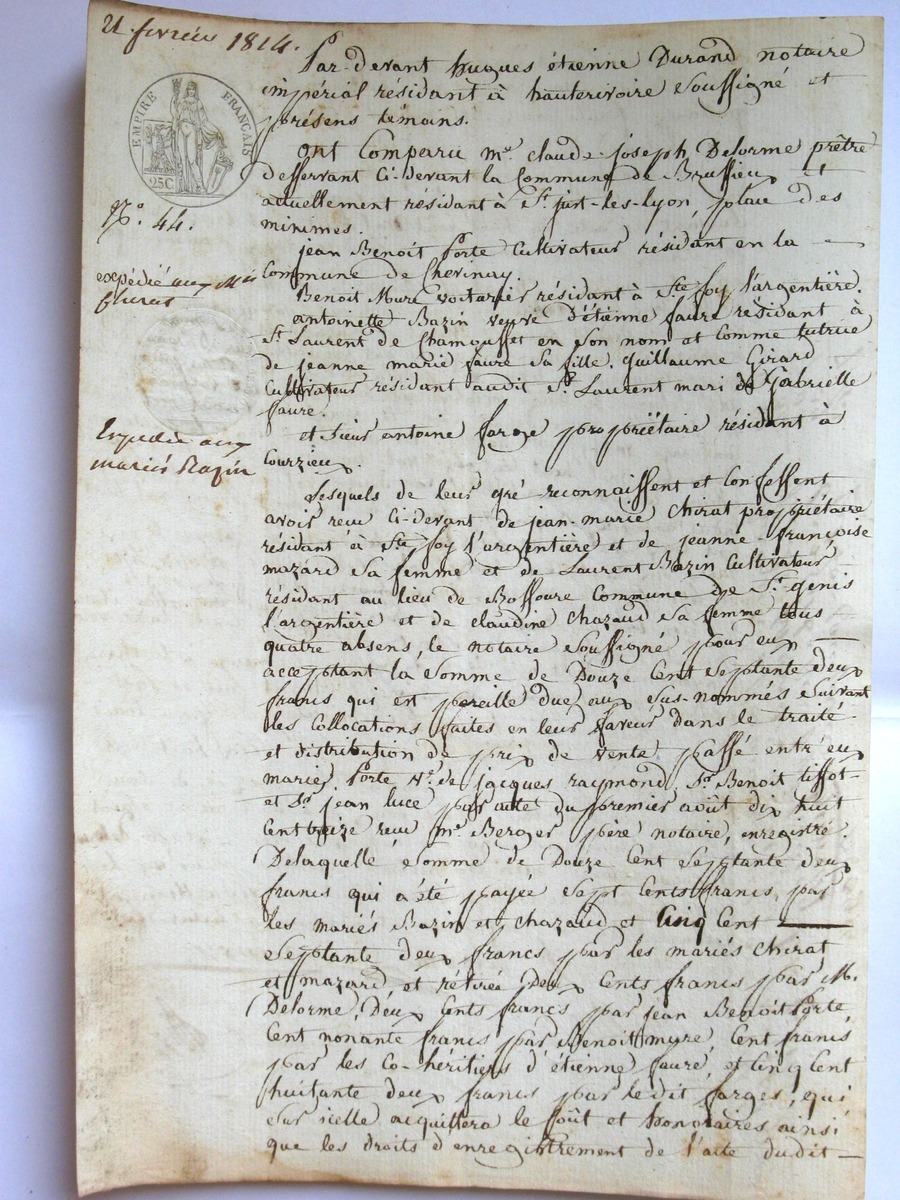 21 février 1814.
EMPIRE FRANÇAIS
25C
N°. 44.
expédié aux
mariés Bazin
Par-devant hugues étienne Durand notaire
impérial résidant à hauterivoire soussigné et
présens témoins.
Ont Comparu mr. claude-joseph Delorme prêtre
desservant Ci-devant la Commune de Brussieux et
actuellement résidant à St. just-les-lyon, place des
minimes.
jean Benoit Porte Cultivateur résidant en la
Commune de Chevinay.
Benoit Mure voiturier résidant à Ste foy l'argentière.
antoinette Bazin veuve d'étienne faure résidant à
St. Laurent de Chamousset en son nom et Comme tutrice
de jeanne marie faure sa fille. guillaume Girard
Cultivateur résidant audit St. Laurent mari de Gabrielle
faure.
et sieur antoine farge propriétaire résidant à
Courzieux.
Lesquels de leur gré reconnaissent et Confessent
avoir reçu Ci-devant de jean-marie Chirat propriétaire
résidant à Ste foy l'argentière et de jeanne françoise
mazard sa femme et de Laurent Bazin Cultivateur
résidant au lieu de Bossoure Commune de St. genis
l'argentière et de claudine Chazaud sa femme tous
quatre absens, le notaire soussigné pour eux
acceptant la somme de Douze Cent septante deux
francs qui est pareille due aux sus-nommés suivant
les Collocations faites en leur faveur dans le traité
et distribution de prix de vente passé entr'eux
marie Porte ve. de jacques raymond, Sr. Benoit tissot
et Sr. jean luce par acte du premier août dix huit
Cent treize reçu me. Berger père notaire, enregistré.
Delaquelle somme de Douze Cent septante deux
francs qui a été payée sept Cents francs par
les mariés Bazin et Chazaud et Cinq Cent
septante deux francs par les mariés Chirat
et mazard, et rétirée Deux Cents francs par M.
Delorme, Deux Cents francs par jean Benoit Porte,
Cent nonante francs par Benoit mure, Cent francs
par les Co-héritiers d'étienne faure, et Cinq Cent
huitante deux francs par ledit farges, qui
sur icelle acquittera le Coût et honoraires ainsi
que les droits d'enregistrement de l'acte dudit